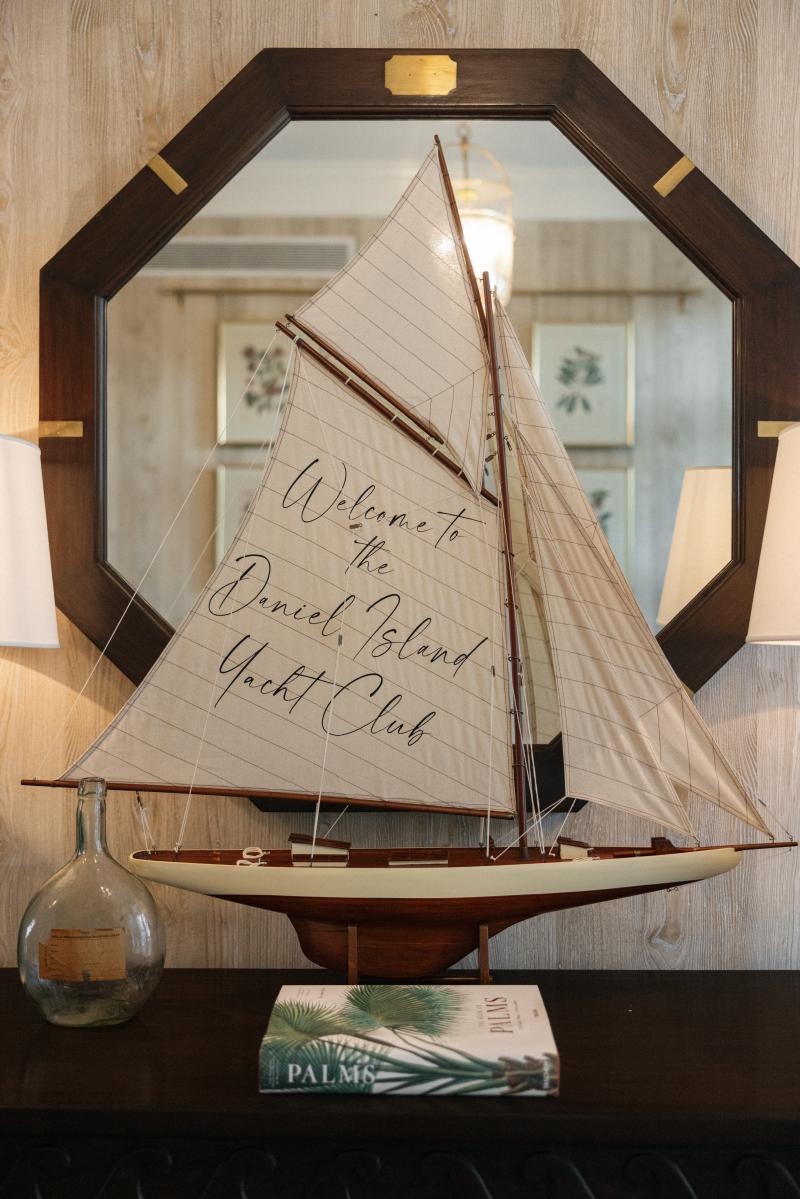 Welcome to
the
Daniel Island
Yacht Club
THE BOOK OF
PALMS
PALMS